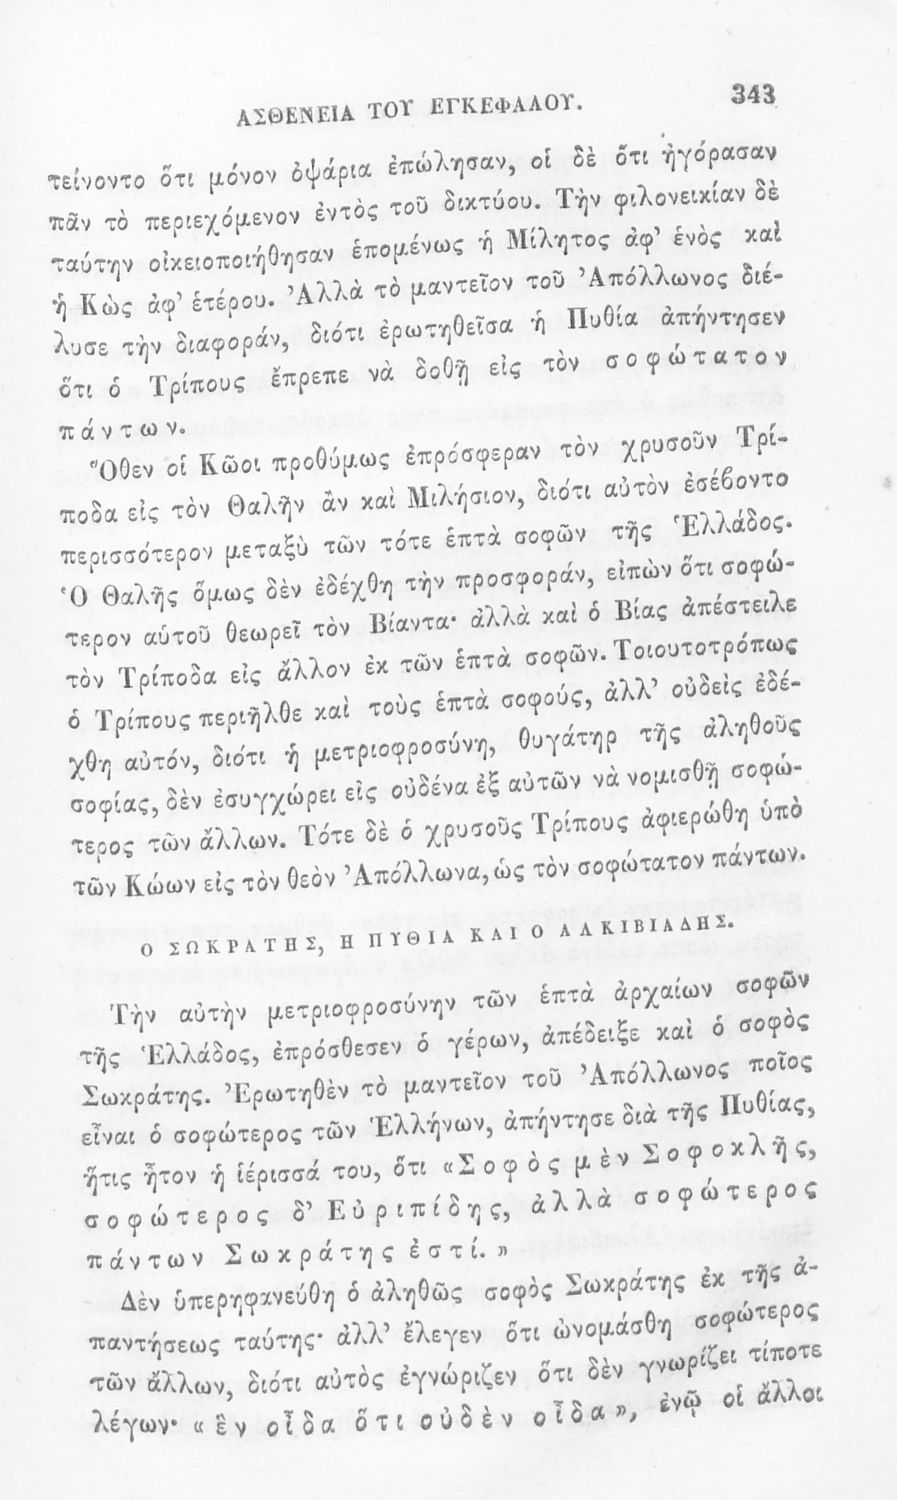 ΑΣΘΕΝΕΙΑ ΤΟΥ ΕΓΚΕΦΑΛΟΥ. 343
τείνοντο ὅτι μόνον ὀψάρια ἐπώλησαν, οἱ δὲ ὅτι ἠγόρασαν
πᾶν τὸ περιεχόμενον ἐντὸς τοῦ δικτύου. Τὴν φιλονεικίαν δὲ
ταύτην οἰκειοποιήθησαν ἑπομένως ἡ Μίλητος ἀφ' ἑνὸς καὶ
ἡ Κὼς ἀφ' ἑτέρου. Ἀλλὰ τὸ μαντεῖον τοῦ Ἀπόλλωνος διέ-
λυσε τὴν διαφοράν, διότι ἐρωτηθεῖσα ἡ Πυθία ἀπήντησεν
ὅτι ὁ Τρίπους ἔπρεπε νὰ δοθῇ εἰς τὸν σοφώτατον
πάντων.
Ὅθεν οἱ Κῶοι προθύμως ἐπρόσφεραν τὸν χρυσοῦν Τρί-
ποδα εἰς τὸν Θαλῆν ἂν καὶ Μιλήσιον, διότι αὐτὸν ἐσέβοντο
περισσότερον μεταξὺ τῶν τότε ἑπτὰ σοφῶν τῆς Ἑλλάδος.
Ὁ Θαλῆς ὅμως δὲν ἐδέχθη τὴν προσφοράν, εἰπὼν ὅτι σοφώ-
τερον αὑτοῦ θεωρεῖ τὸν Βίαντα· ἀλλὰ καὶ ὁ Βίας ἀπέστειλε
τὸν Τρίποδα εἰς ἄλλον ἐκ τῶν ἑπτὰ σοφῶν. Τοιουτοτρόπως
ὁ Τρίπους περιῆλθε καὶ τοὺς ἑπτὰ σοφούς, ἀλλ' οὐδεὶς ἐδέ-
χθη αὐτόν, διότι ἡ μετριοφροσύνη, θυγάτηρ τῆς ἀληθοῦς
σοφίας, δὲν ἐσυγχώρει εἰς οὐδένα ἐξ αὐτῶν νὰ νομισθῇ σοφώ-
τερος τῶν ἄλλων. Τότε δὲ ὁ χρυσοῦς Τρίπους ἀφιερώθη ὑπὸ
τῶν Κώων εἰς τὸν θεὸν Ἀπόλλωνα, ὡς τὸν σοφώτατον πάντων.
Ο ΣΩΚΡΑΤΗΣ, Η ΠΥΘΙΑ ΚΑΙ Ο ΑΛΚΙΒΙΑΔΗΣ.
Τὴν αὐτὴν μετριοφροσύνην τῶν ἑπτὰ ἀρχαίων σοφῶν
τῆς Ἑλλάδος, ἐπρόσθεσεν ὁ γέρων, ἀπέδειξε καὶ ὁ σοφὸς
Σωκράτης. Ἐρωτηθὲν τὸ μαντεῖον τοῦ Ἀπόλλωνος ποῖος
εἶναι ὁ σοφώτερος τῶν Ἑλλήνων, ἀπήντησε διὰ τῆς Πυθίας,
ἥτις ἦτον ἡ ἱέρισσά του, ὅτι «Σοφὸς μὲν Σοφοκλῆς,
σοφώτερος δ' Εὐριπίδης, ἀλλὰ σοφώτερος
πάντων Σωκράτης ἐστί.»
Δὲν ὑπερηφανεύθη ὁ ἀληθῶς σοφὸς Σωκράτης ἐκ τῆς ἀ-
παντήσεως ταύτης· ἀλλ' ἔλεγεν ὅτι ὠνομάσθη σοφώτερος
τῶν ἄλλων, διότι αὐτὸς ἐγνώριζεν ὅτι δὲν γνωρίζει τίποτε
λέγων· «ἓν οἶδα ὅτι οὐδὲν οἶδα», ἐνῷ οἱ ἄλλοι